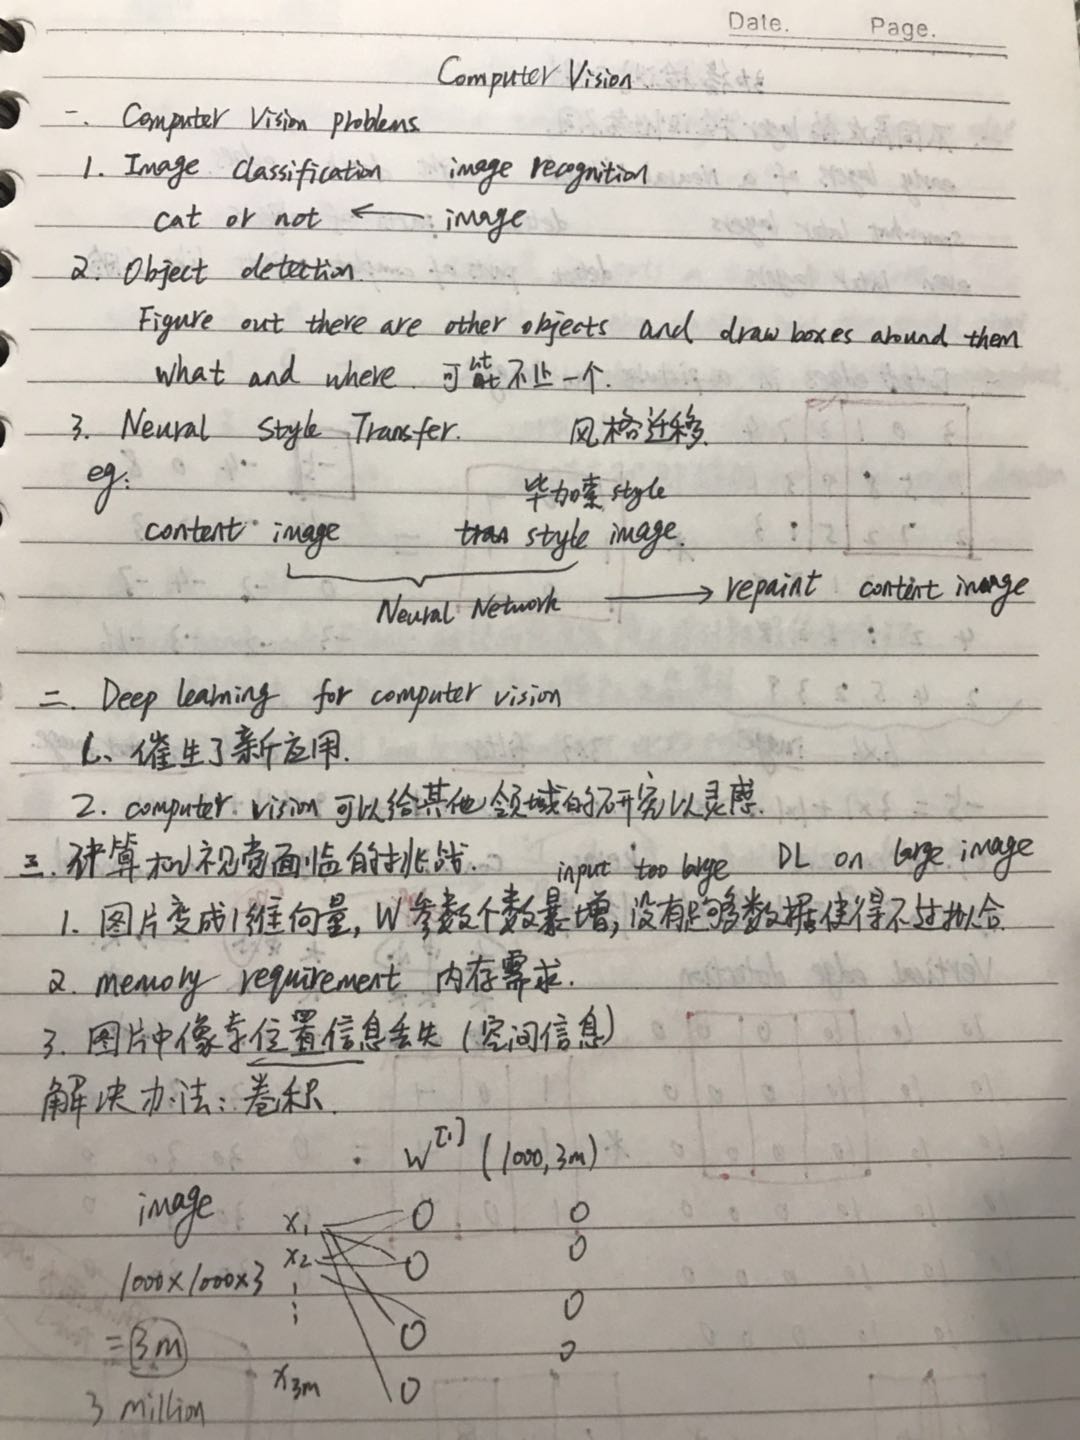 Date. Page.
Computer Vision
一. Computer Vision problems
1. Image classification image recognition
cat or not ← image
2. Object detection.
Figure out there are other objects and draw boxes around them
what and where. 可能不止一个.
3. Neural Style Transfer. 风格迁移.
eg:
毕加索 style
content image style image.
Neural Network → repaint content image
二. Deep learning for computer vision
1、催生了新应用.
2. computer vision 可以给其他领域的研究以灵感.
三. 计算机视觉面临的挑战. input too large DL on large image
1. 图片变成1维向量, W 参数个数暴增, 没有足够多数据使得不过拟合
2. memory requirement 内存需求.
3. 图片中像素位置信息丢失 (空间信息)
解决办法: 卷积.
W[1] (1000, 3m)
image
x1
x2
1000×1000×3
= 3m
x3m
3 million